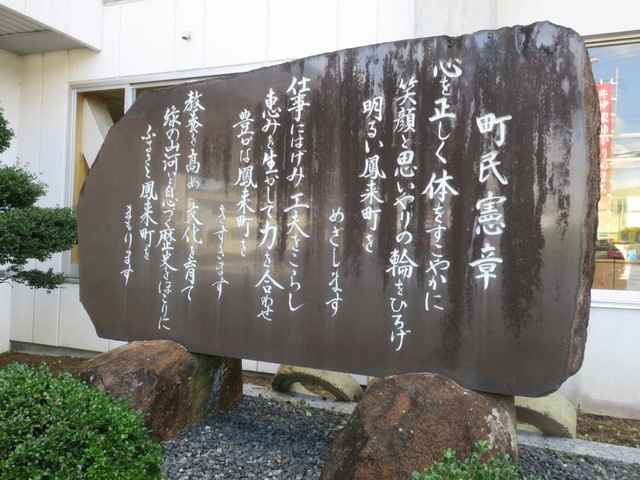 町民憲章
心を正しく体をすこやかに
笑顔と思いやりの輪をひろげ
明るい鳳来町を
めざします
仕事にはげみ工夫をこらし
恵みを生かして力を合わせ
豊かな鳳来町を
きずきます
教養を高め文化を育て
緑の山河に息づく歴史をほこりに
ふるさと鳳来町を
まもります